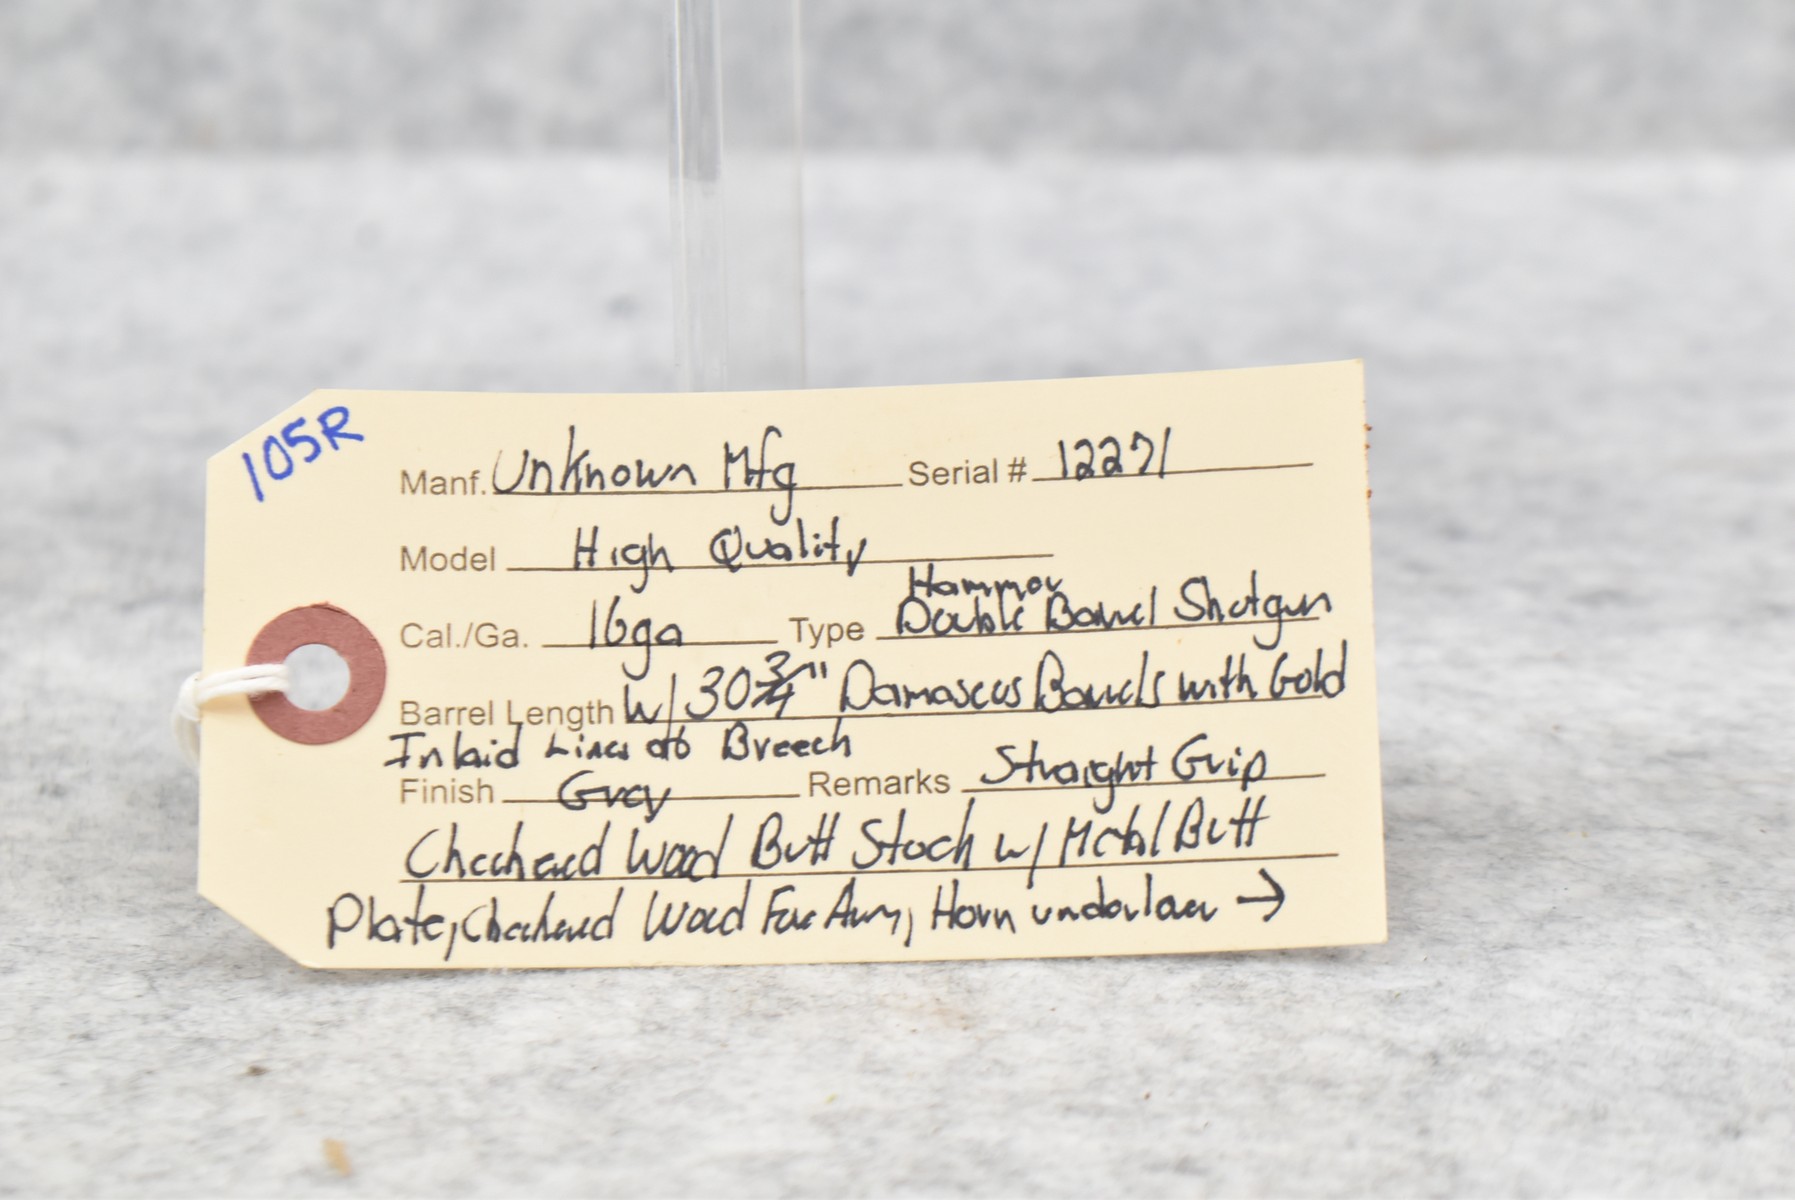 105R
Manf. Unknown Mfg Serial # 12271
Model High Quality
Hammer
Cal./Ga. 16ga Type Double Barrel Shotgun
Barrel Length w/ 30 3/4" Damascus Barrels with Gold
Inlaid Lines at Breech
Finish Grey Remarks Straight Grip
Checkered Wood Butt Stock w/ Metal Butt
Plate, Checkered Wood Fore Arm, Horn underlever →